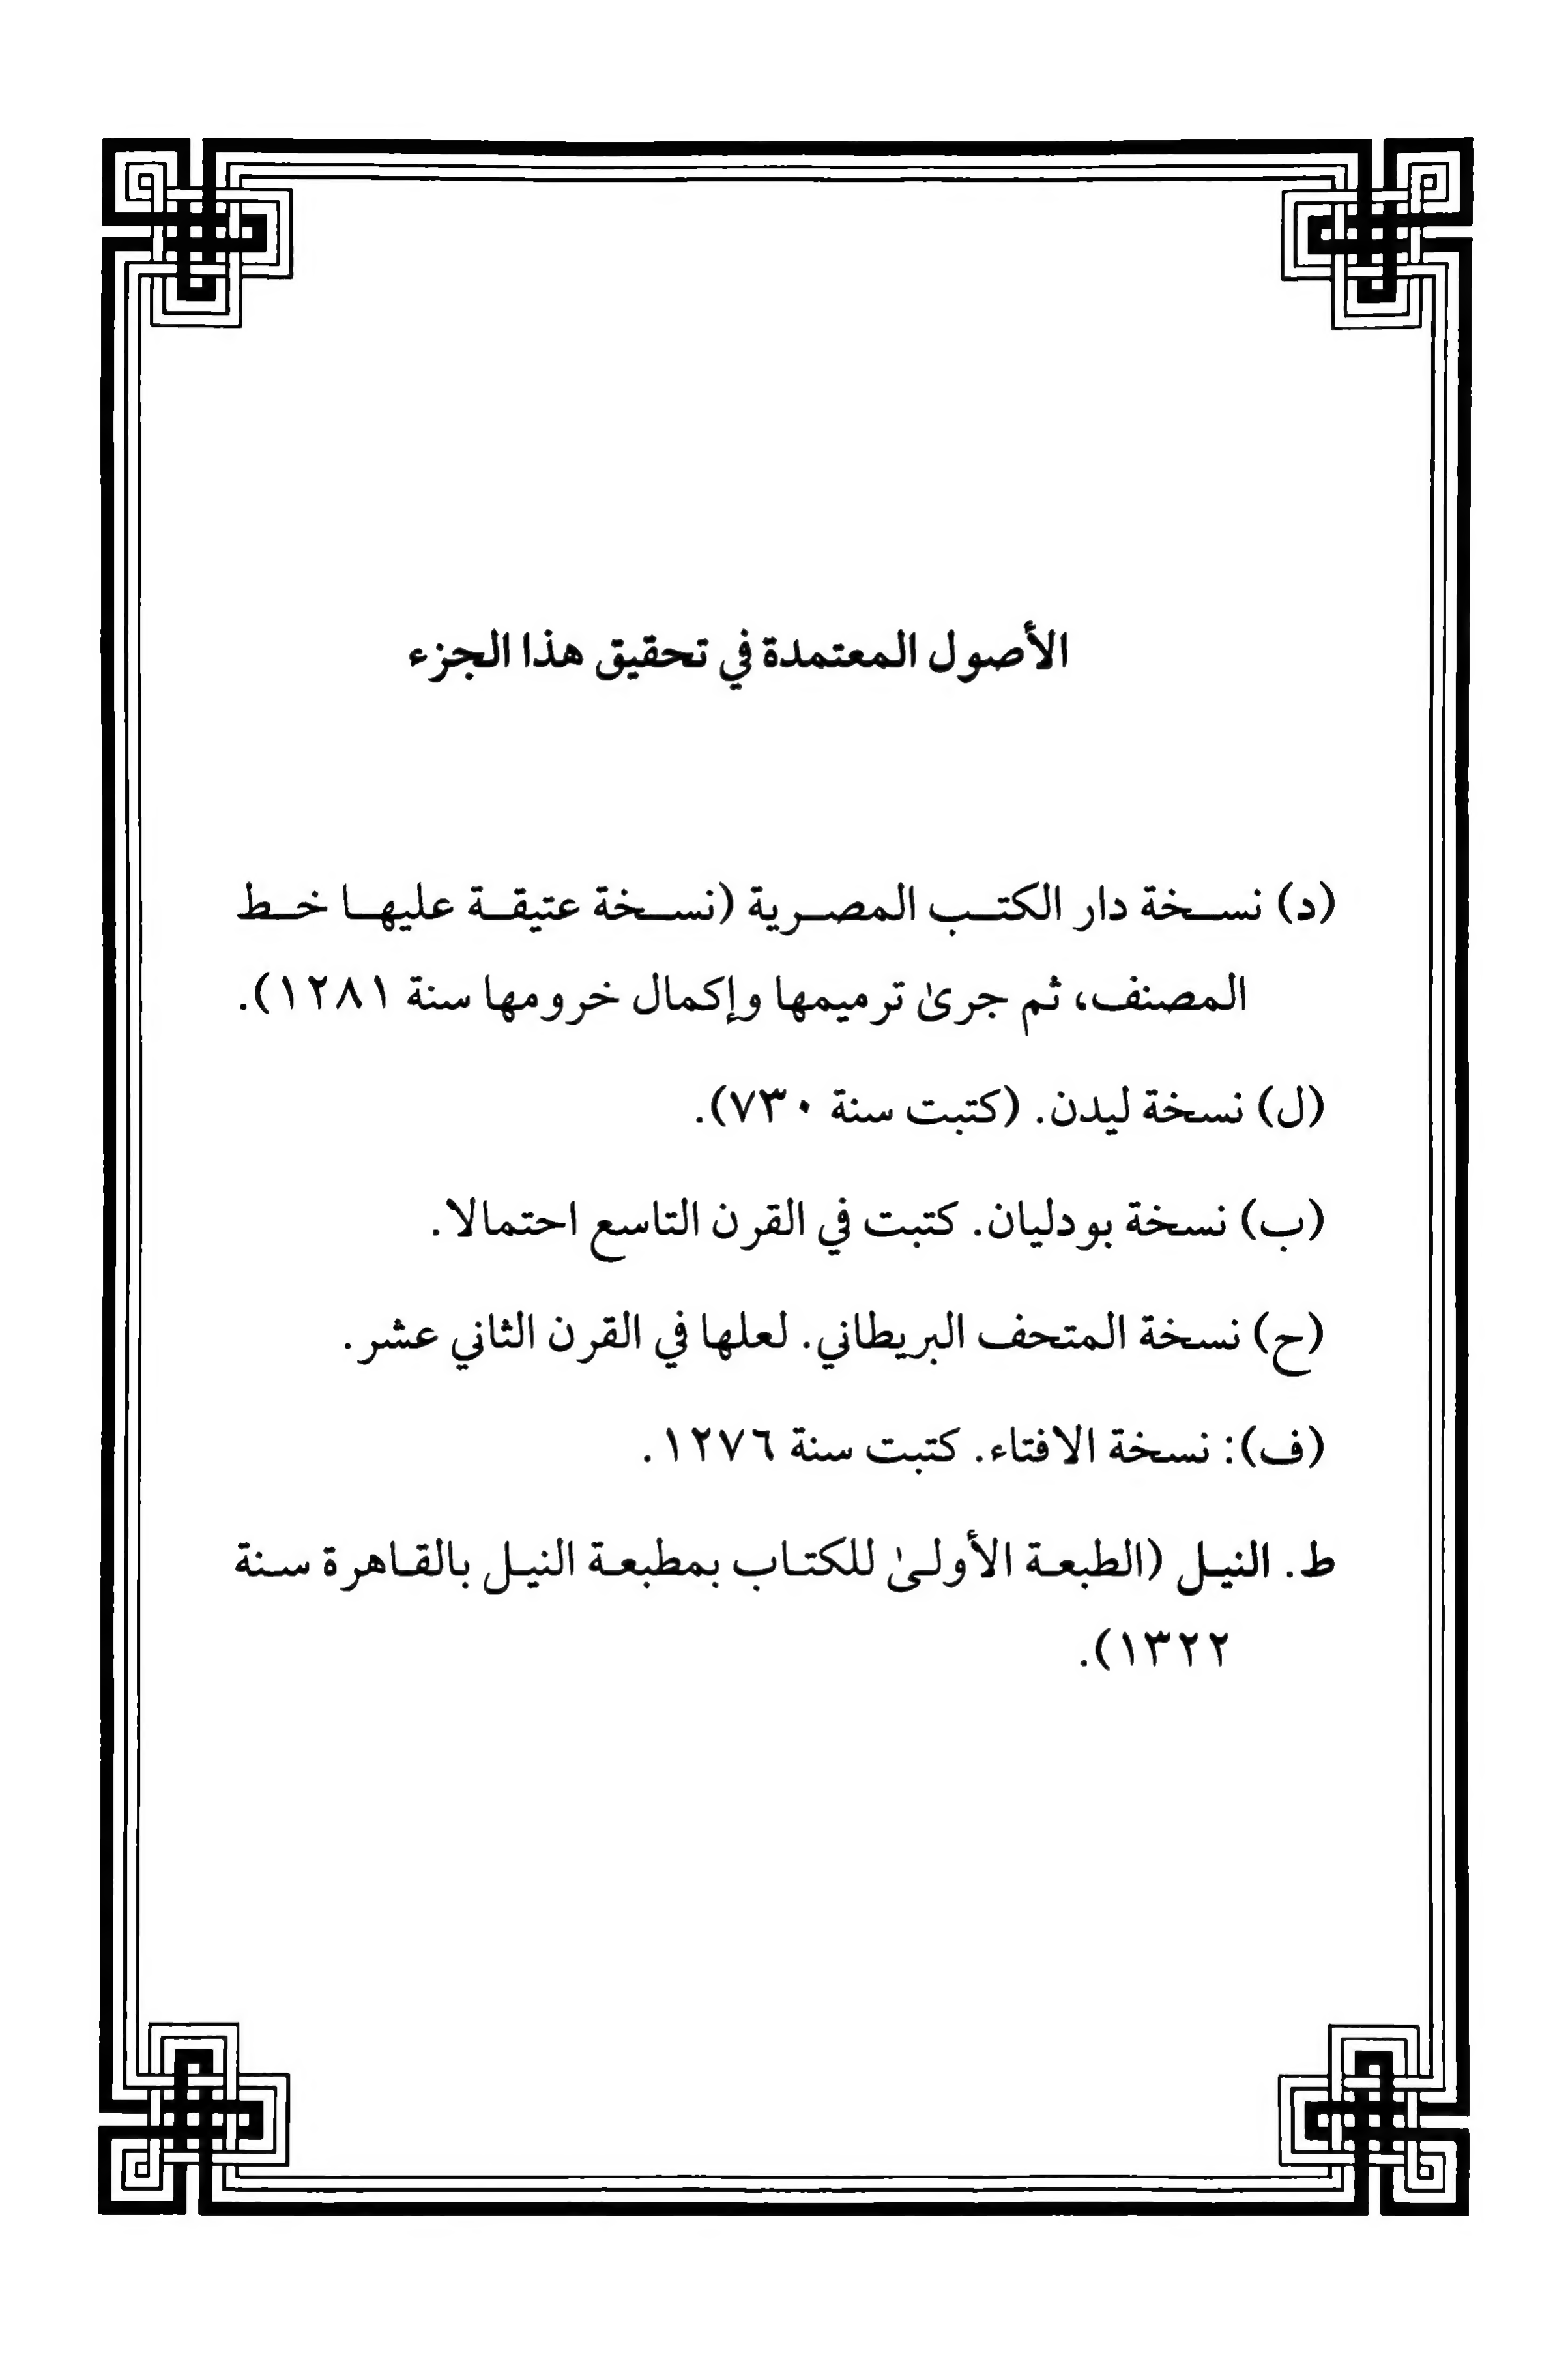 الأصول المعتمدة في تحقيق هذا الجزء
(د) نسخة دار الكتب المصرية (نسخة عتيقة عليها خط
المصنف، ثم جرىٰ ترميمها وإكمال خرومها سنة ١٢٨١).
(ل) نسخة ليدن. (كتبت سنة ٧٣٠).
(ب) نسخة بودليان. كتبت في القرن التاسع احتمالا.
(ح) نسخة المتحف البريطاني. لعلها في القرن الثاني عشر.
(ف): نسخة الافتاء. كتبت سنة ١٢٧٦.
ط. النيل (الطبعة الأولىٰ للكتاب بمطبعة النيل بالقاهرة سنة
١٣٢٢).